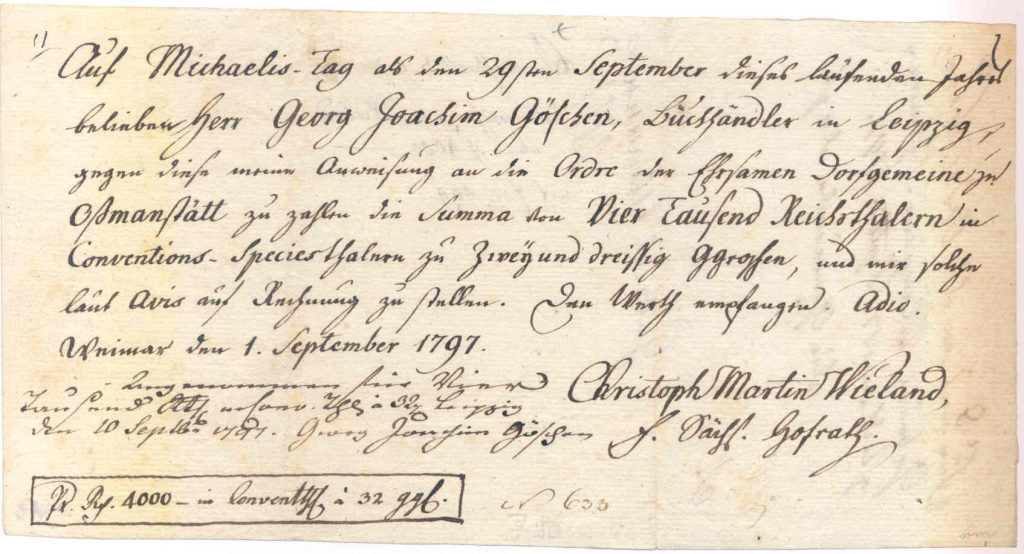 Auf Michaelis-Tag als den 29sten September dieses laufenden Jahres
belieben Herr Georg Joachim Göschen, Buchhändler in Leipzig,
gegen diese meine Anweisung an die Ordre der Ehrsamen Dorfgemeine zu
Oßmanstätt zu zahlen die Summa von Vier Tausend Reichsthalern in
Conventions-Speciesthalern zu Zweyund dreissig Ggroschen, und mir solche
laut Avis auf Rechnung zu stellen. Den Werth empfangen. Adio.
Weimar den 1. September 1797.
Christoph Martin Wieland,
F. Sächs. Hofrath.
Angenommen für Vier
Tausend à 32 Leipzig
den 10 Septbr 1797. Georg Joachim Göschen
Pr. Rth. 4000 – in Convent à 32 ggl.
N 633